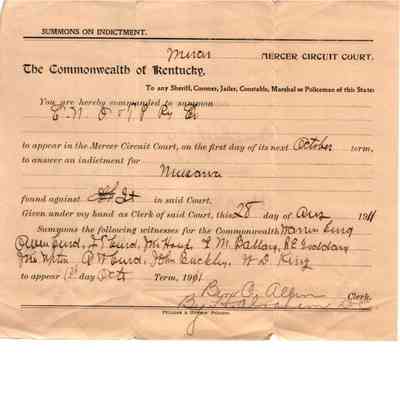 SUMMONS ON INDICTMENT.
Mercer MERCER CIRCUIT COURT.
The Commonwealth of Kentucky,
To any Sheriff, Coroner, Jailer, Constable, Marshal or Policeman of this State:
You are hereby commanded to summon
Ry Co
to appear in the Mercer Circuit Court, on the first day of its next October term,
to answer an indictment for
found against in said Court.
Given under my hand as Clerk of said Court, this 28 day of Aug 1911
Summons the following witnesses for the Commonwealth Warren King
Hurd, John M Ballard, Goddard
Upton John Buckley, W D King
to appear 1st day Oct Term, 1911
Ben C. Allin Clerk.
By D.C.